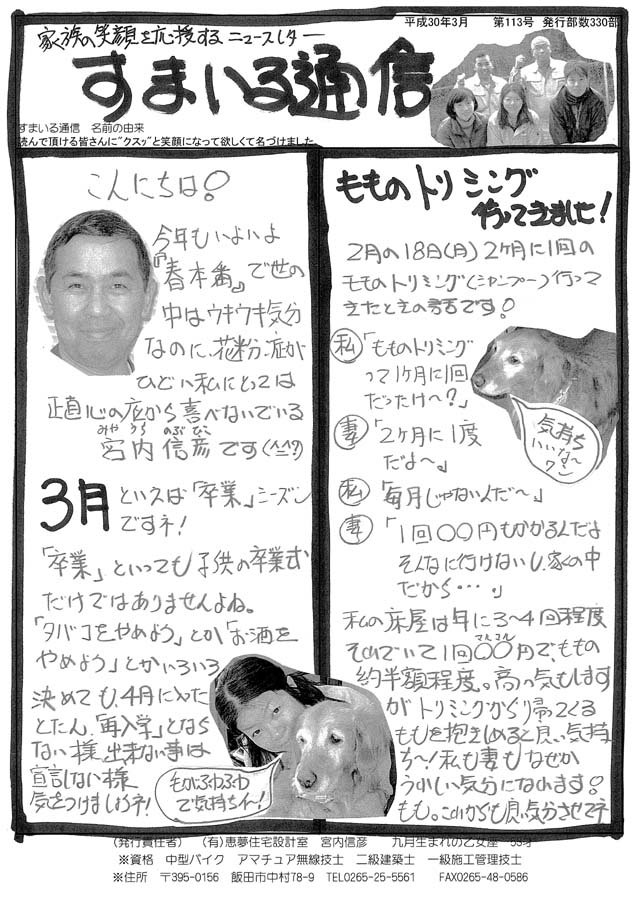 家族の笑顔を応援するニュースレター
平成30年3月 第113号 発行部数330部
すまいる通信
すまいる通信 名前の由来
読んで頂ける皆さんに"クスッ"と笑顔になって欲しくて名づけました
こんにちは!
今年もいよいよ
『春本番』で世の
中はウキウキ気分
なのに、花粉症が
ひどい私にとっては
正直心の底から喜べないでいる
みや うち のぶ ひこ
宮内信彦です(^-^?)
3月といえば「卒業」シーズン
ですネ!
「卒業」といっても子供の卒業式
だけではありませんよね。
「タバコをやめよう」とか「お酒を
やめよう」とかいろいろ
決めても、4月に入った
とたん、「再入学」となら
ない様、出来ない事は
宣言しない様
気をつけましょうネ!
ももふわふわ
で気持ちイー!
もものトリミング
行ってきました!
2月の18日(月)2ヶ月に1回の
もものトリミング(シャンプー)行って
きたときの話です!
私「もものトリミング
って1ヶ月に1回
だったけ〜?」
妻「2ヶ月に1度
だよ〜」
私「毎月じゃないんだ〜」
妻「1回〇〇円もかかるんだよ
そんなに行けないし、家の中
だから・・・」
気持ち
いいな〜
ワン
私の床屋は年に3〜4回程度
それでいて1回〇〇円で、ももの
マルマル
約半額程度。高い気もします
がトリミングから帰ってくる
ももを抱きしめると良い気持
ち〜!私も妻もなぜか
うれしい気分になれます!
もも。これからも良い気分させてネ
(発行責任者) (有)恵夢住宅設計室 宮内信彦 九月生まれの乙女座 55才
※資格 中型バイク アマチュア無線技士 二級建築士 一級施工管理技士
※住所 〒395-0156 飯田市中村78-9 TEL0265-25-5561 FAX0265-48-0586